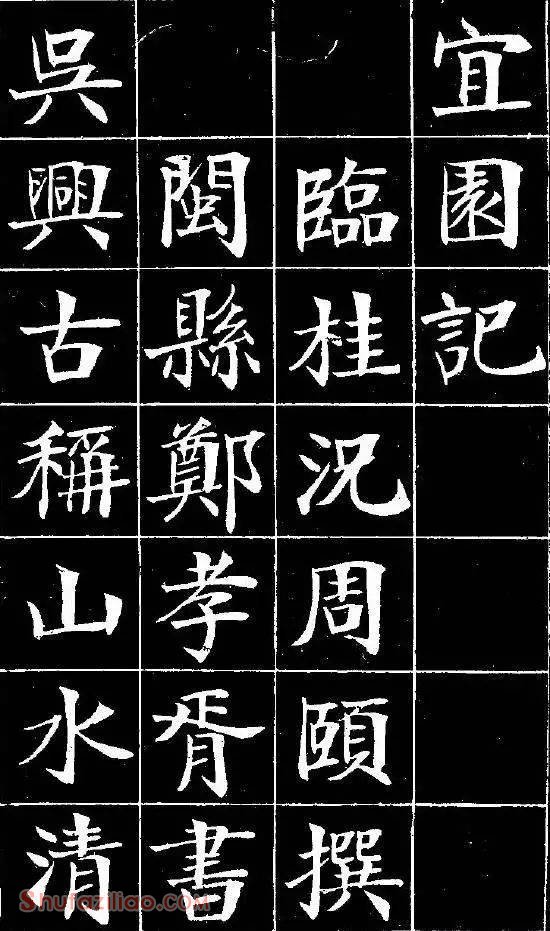 宜園記
臨桂況周頤撰
閩縣鄭孝胥書
吳興古稱山水清
Shufaziliao.COM